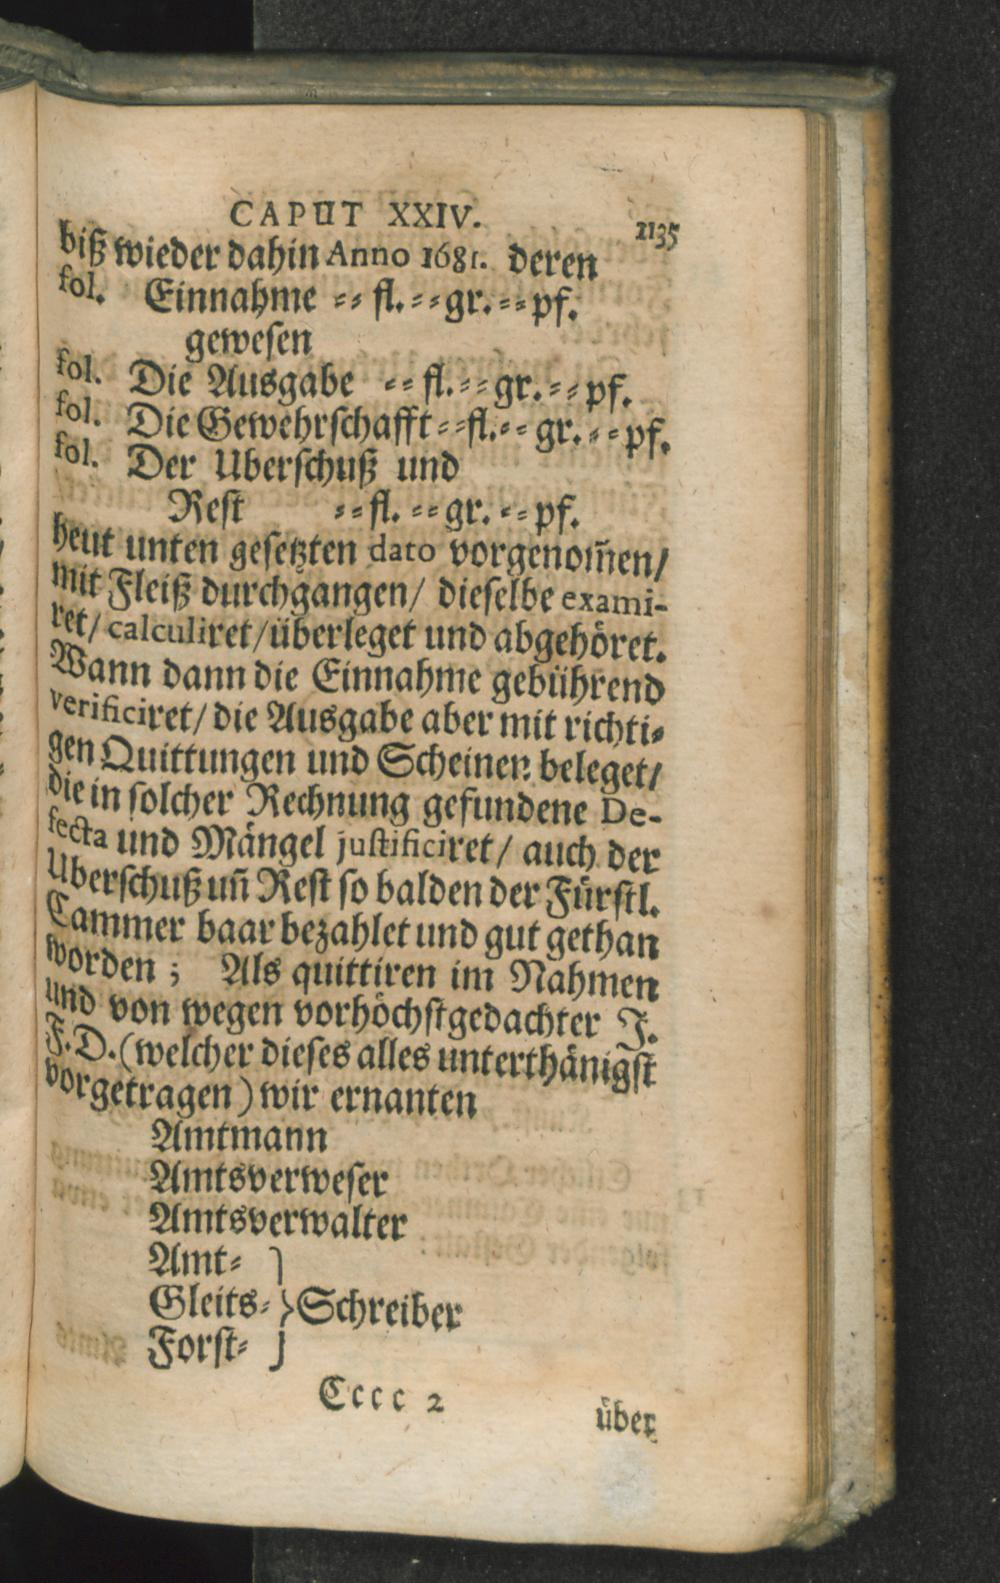 CAPUT XXIV. 1135
biß wieder dahin Anno 1681. deren
fol. Einnahme ⸗⸗ fl.⸗⸗gr.⸗⸗pf.
gewesen
fol. Die Ausgabe ⸗⸗fl.⸗⸗gr.⸗⸗pf.
fol. Die Gewehrschafft⸗⸗fl.⸗⸗gr.⸗⸗pf.
fol. Der Uberschuß und
Rest ⸗⸗fl.⸗⸗gr.⸗⸗pf.
heut unten gesetzten dato vorgenom̃en/
mit Fleiß durchgangen/ dieselbe exami-
ret/ calculiret/überleget und abgehöret.
Wann dann die Einnahme gebührend
verificiret/ die Ausgabe aber mit richti⸗
gen Quittungen und Scheinen beleget/
die in solcher Rechnung gefundene De-
fecta und Mängel justificiret/ auch der
Uberschuß uñ Rest so balden der Fürstl.
Cammer baar bezahlet und gut gethan
worden; Als quittiren im Nahmen
und von wegen vorhöchstgedachter J.
F.D.(welcher dieses alles unterthänigst
vorgetragen) wir ernanten
Amtmann
Amtsverweser
Amtsverwalter
Amt⸗
Gleits⸗ }Schreiber
Forst⸗
Cccc 2
über